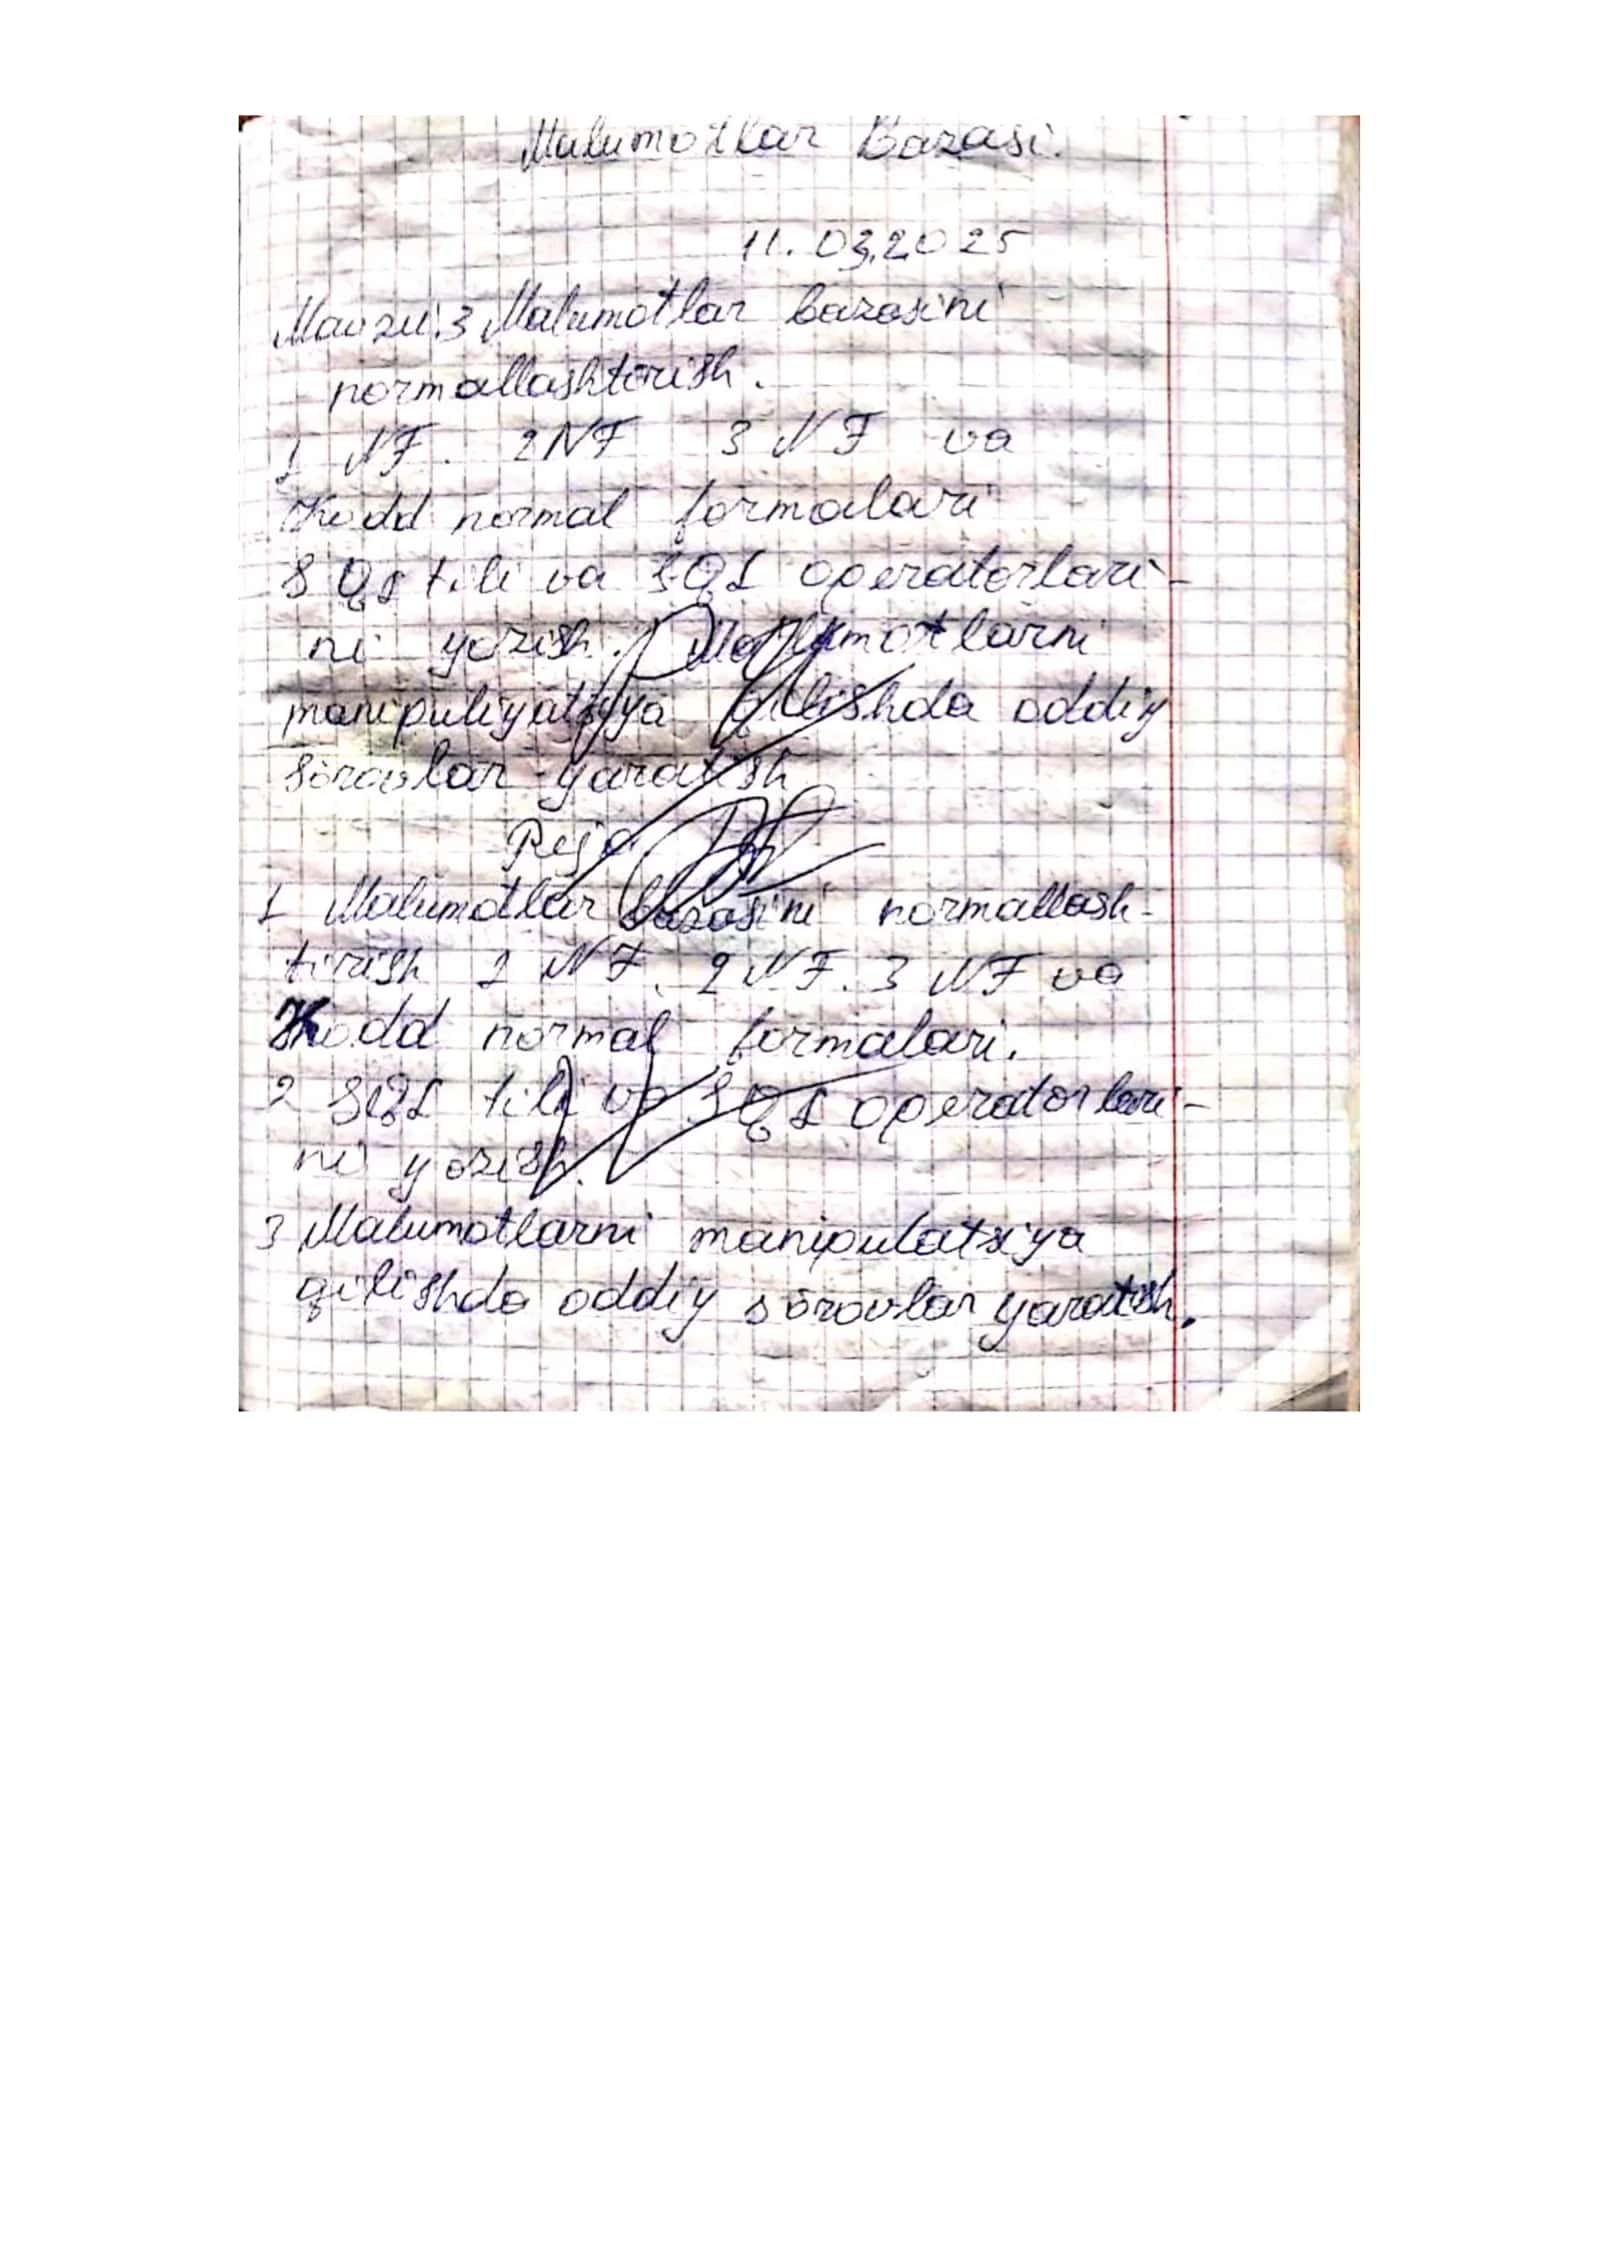 Malumotlar Bazasi.
11.03.2025
Mavzu:3 Malumotlar bazasini
normallashtirish.
1 NF. 2NF 3 NF va
Kodd normal formalari
SQL tili va SQL operatorlari-
ni yozish. Malumotlarni
manipuliyatsiya qilishda oddiy
sorovlar yaratish
Reja
1 Malumotlar bazasini normallash-
tirish 1 NF. 2 NF. 3 NF va
Kodd normal formalari.
2 SQL tili va SQL operatorlari-
ni yozish.
3 Malumotlarni manipulatsiya
qilishda oddiy sōrovlar yaratish.